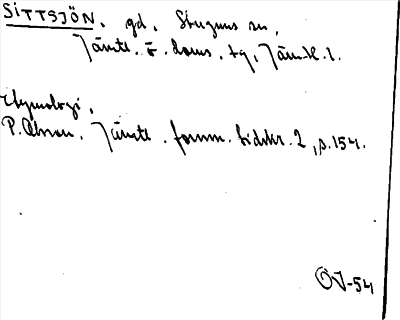 SITTSJÖN. gd. Stuguns sn,
Jämtl. ö. doms. tg, Jämtl. l.
Etymologi,
P. Olsson. Jämtl. fornm. tidskr. 2, s. 154.
OV-54